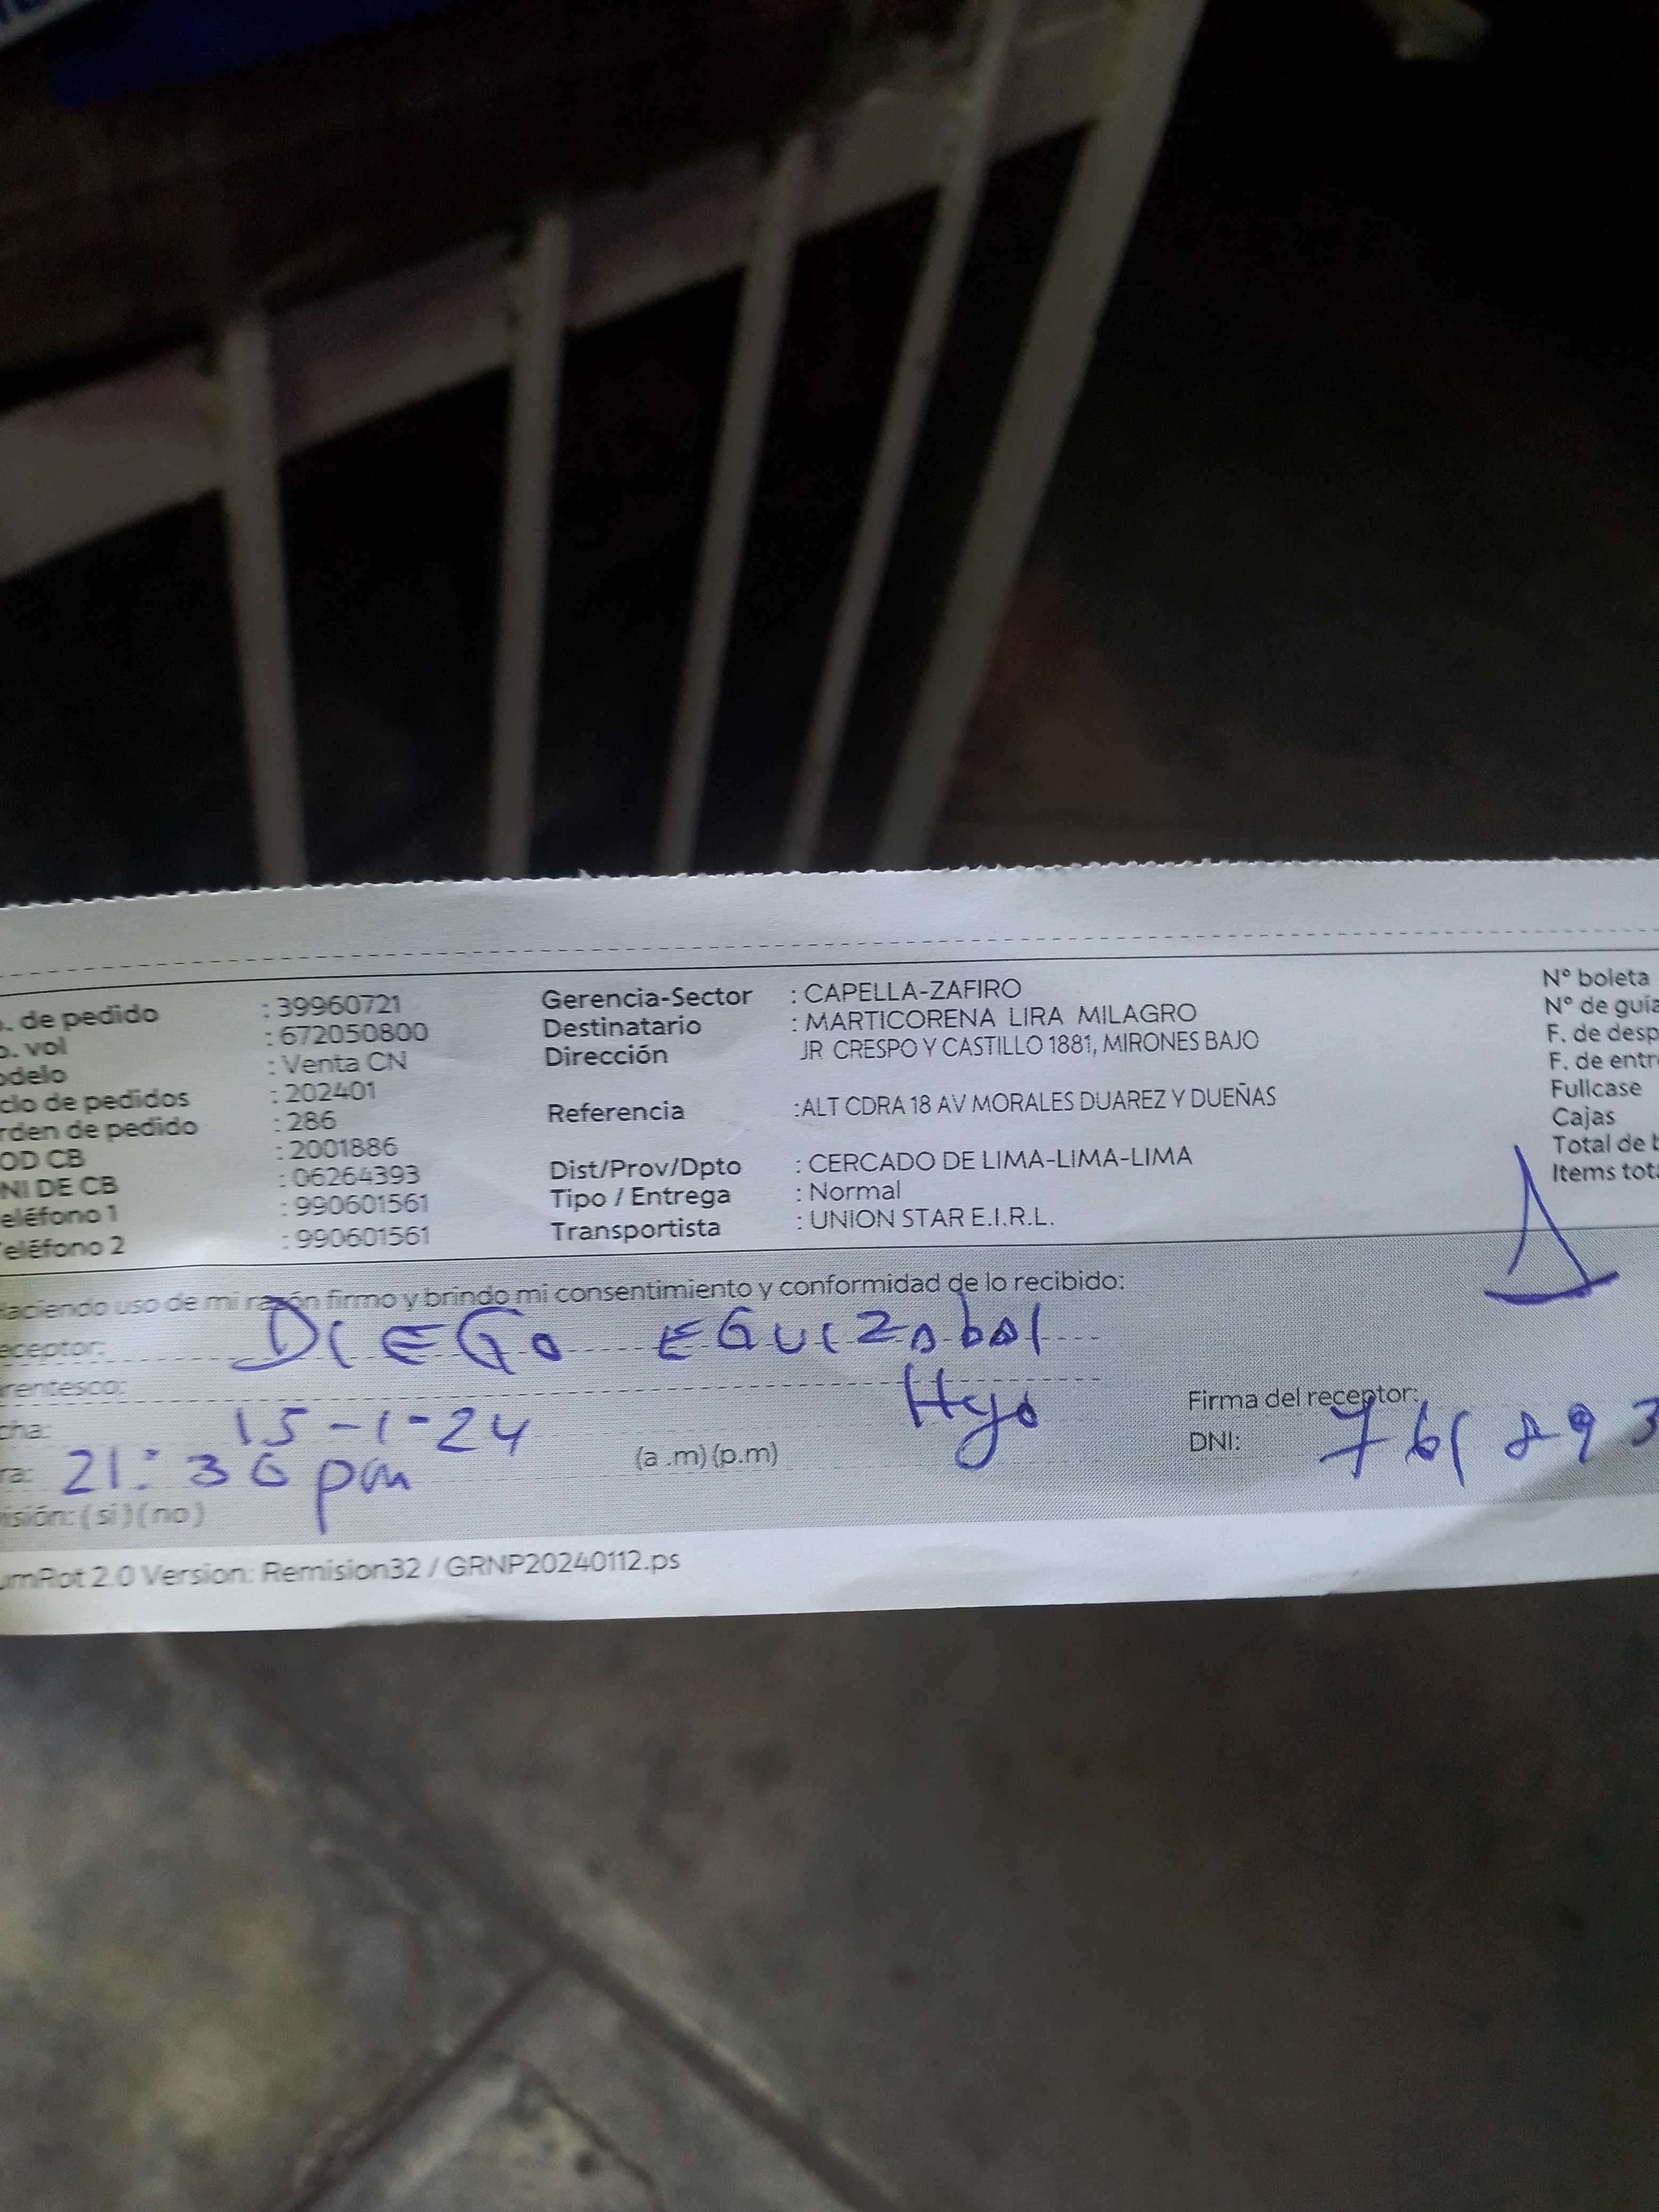 . de pedido : 39960721 Gerencia-Sector : CAPELLA-ZAFIRO Nº boleta
o. vol : 672050800 Destinatario : MARTICORENA LIRA MILAGRO Nº de guía
odelo : Venta CN Dirección JR CRESPO Y CASTILLO 1881, MIRONES BAJO F. de desp
clo de pedidos : 202401 F. de entre
rden de pedido : 286 Referencia :ALT CDRA 18 AV MORALES DUAREZ Y DUEÑAS Fullcase
OD CB : 2001886 Cajas
NI DE CB : 06264393 Dist/Prov/Dpto : CERCADO DE LIMA-LIMA-LIMA Total de b
eléfono 1 : 990601561 Tipo / Entrega : Normal Items tota
eléfono 2 : 990601561 Transportista : UNION STAR E.I.R.L.
Haciendo uso de mi razón firmo y brindo mi consentimiento y conformidad de lo recibido:
eceptor: DIEGO EGUIZabal
rentesco: Hyo
cha: 15-1-24 Firma del receptor:
ra: 21:36 pm (a.m)(p.m) DNI:
isión: (si)(no)
umRot 2.0 Version: Remision32 / GRNP20240112.ps